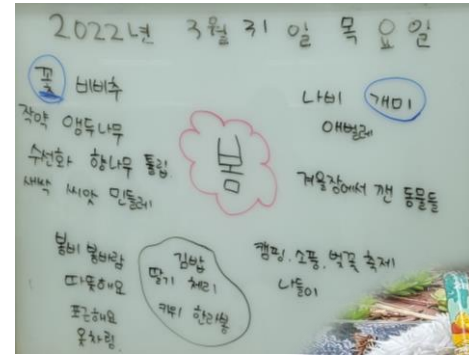 2022년 3월 31일 목요일
꽃 비비추
작약 앵두나무
수선화 향나무 튤립
새싹 씨앗 민들레
봄
나비 개미
애벌레
겨울잠에서 깬 동물들
봄비 봄바람
따뜻해요
포근해요
옷차림
김밥
딸기 체리
키위 한라봉
캠핑, 소풍, 벚꽃 축제
나들이